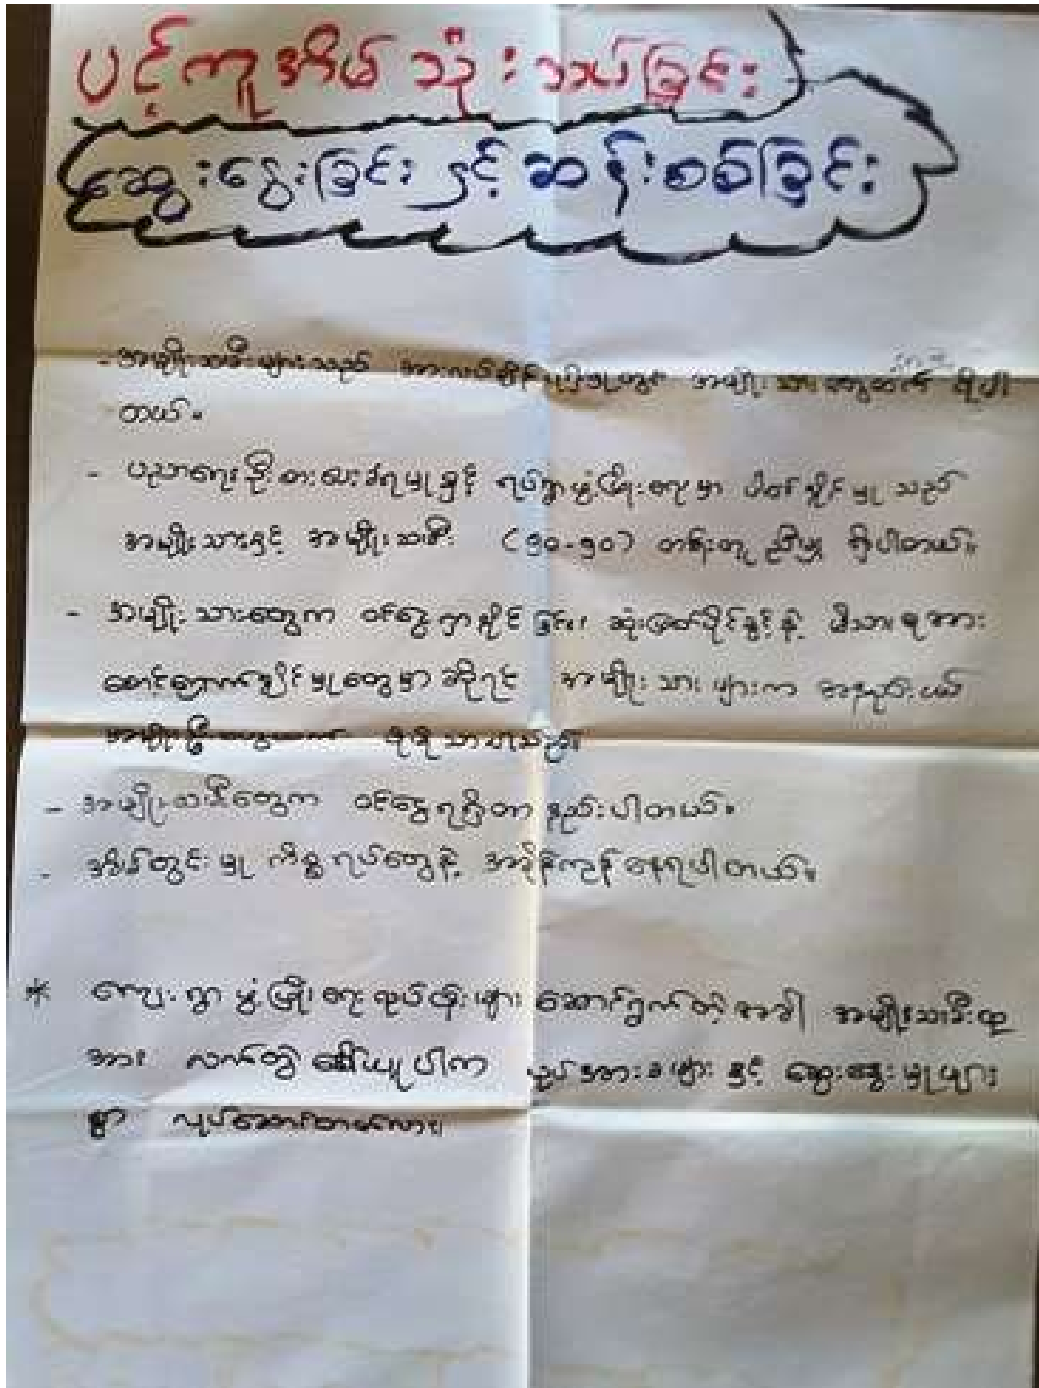 ပင့်ကူအိမ် သုံးသပ်ခြင်း
ဆွေးနွေးခြင်း နှင့် ဆန်းစစ်ခြင်း
- အမျိုးသမီးများသည် အားလပ်ချိန် အမျိုးသားတွေထက် ပိုပါ
တယ်။
- ပညာရေး ဦးစားပေးခံရမှုနှင့် ရပ်ရွာဖွံ့ဖြိုးရေးမှာ ပါဝင်နိုင်မှုသည်
အမျိုးသားနှင့် အမျိုးသမီး (၅၀-၅၀) တန်းတူညီမျှ ရှိပါတယ်။
- အမျိုးသားတွေက ဝင်ငွေရှာနိုင်ခြင်း၊ ဆုံးဖြတ်ပိုင်ခွင့်နဲ့ မိသားစုအား
စောင့်ရှောက်နိုင်မှုတွေမှာဆိုရင် အမျိုးသားများက အနည်းငယ်
ပိုမိုသာပါသည်။
- အမျိုးသမီးတွေက ဝင်ငွေရရှိတာ နည်းပါတယ်။
- အိမ်တွင်းမှု ကိစ္စရပ်တွေနဲ့ အချိန်ကုန်နေရပါတယ်။
* ကျေးရွာ ဖွံ့ဖြိုးရေးလုပ်ငန်းများ ဆောင်ရွက်တဲ့အခါ အမျိုးသမီးထု
အား လက်တွဲခေါ်ယူပါက လုပ်အားခများ နှင့် ဆွေးနွေးမှုများ
စွာ